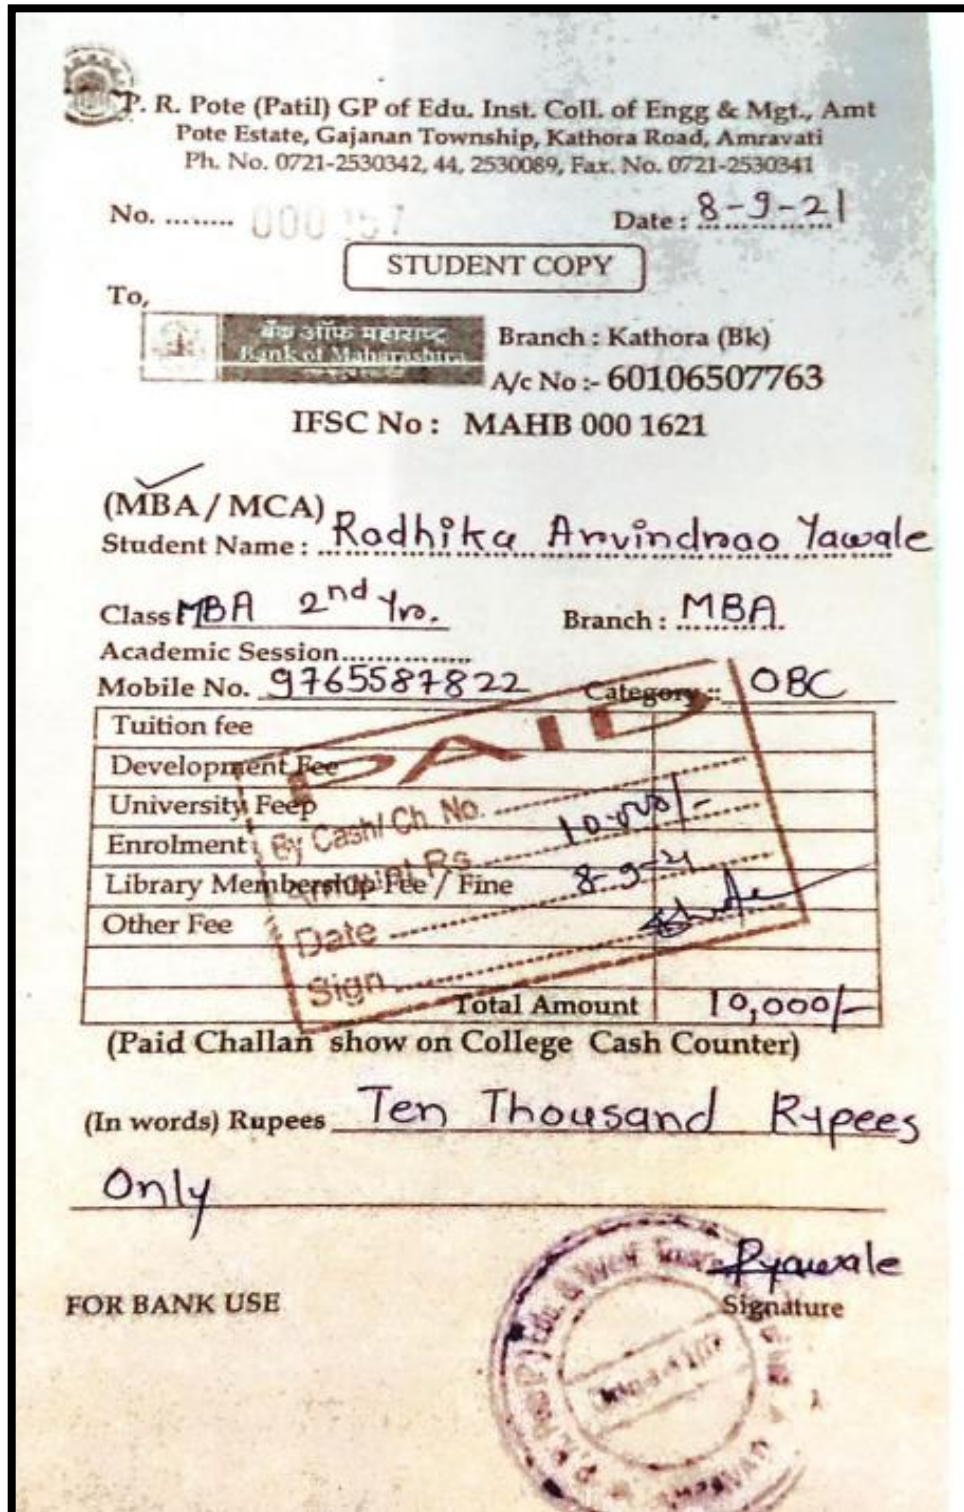 P. R. Pote (Patil) GP of Edu. Inst. Coll. of Engg & Mgt., Amt
Pote Estate, Gajanan Township, Kathora Road, Amravati
Ph. No. 0721-2530342, 44, 2530089, Fax. No. 0721-2530341
No. ........ Date : 8-9-21
STUDENT COPY
To,
बँक ऑफ महाराष्ट्र
Bank of Maharashtra
Branch : Kathora (Bk)
A/c No :- 60106507763
IFSC No : MAHB 000 1621
(MBA / MCA)
Student Name : Radhika Arvindrao Yawale
Class MBA 2nd Yr. Branch : MBA
Academic Session..............
Mobile No. 9765587822 Category :: OBC
Tuition fee
Development Fee
University Feep
Enrolment
Library Membership Fee / Fine
Other Fee
PAID
By Cash/ Ch. No.
Rs. 10.000/-
Date 8-9-21
Sign
Total Amount 10,000/-
(Paid Challan show on College Cash Counter)
(In words) Rupees Ten Thousand Rypees
Only
Ryawale
FOR BANK USE Signature